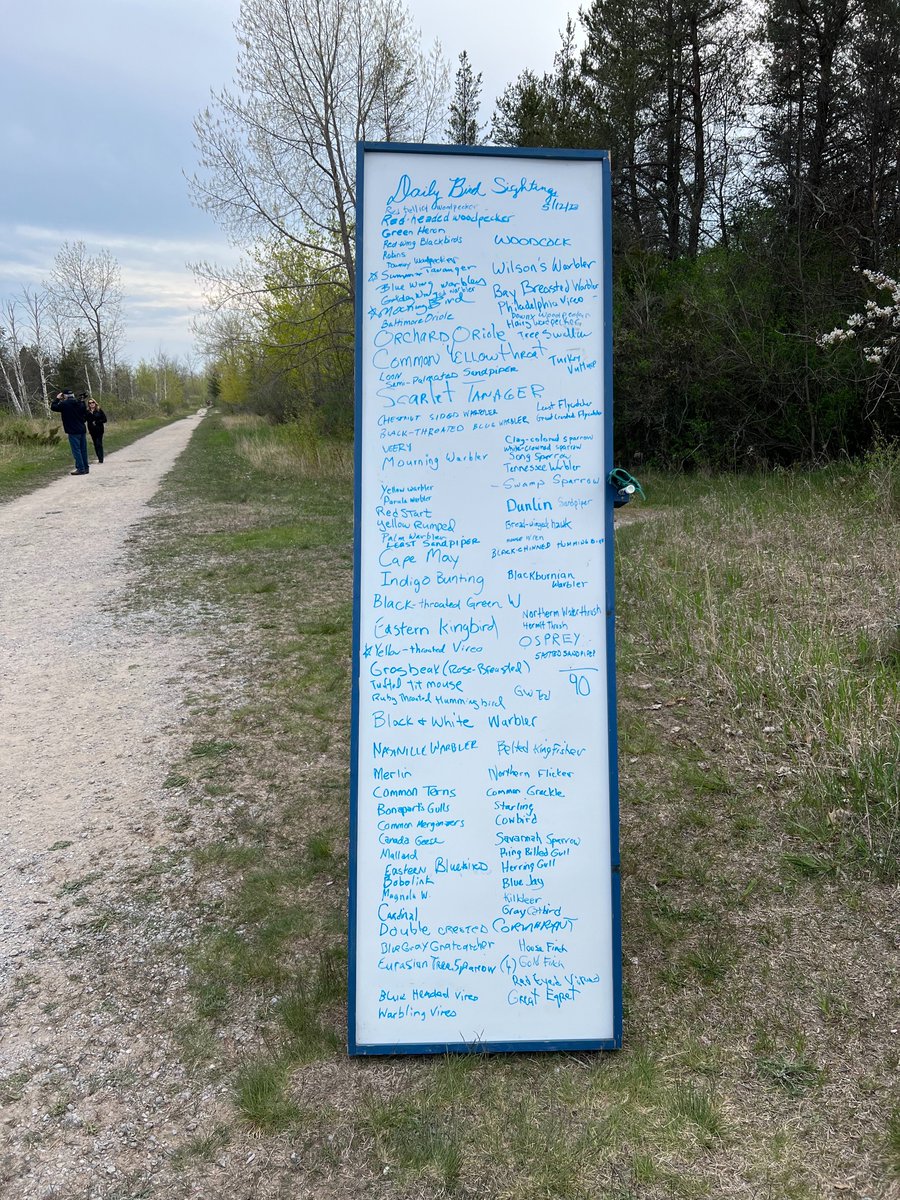 Daily Bird Sightings
5/12/23
Red bellied woodpecker
Red-headed woodpecker
Green Heron
Red-wing Blackbirds
Robins
Downy Woodpecker
☆ Summer Tananger
Blue wing warblers
Golden Winged Warbler
☆ Mocking Bird
Baltimore Oriole
ORCHARD Oriole
Common Yellowthroat
LOON
Semi-Palmated Sandpiper
Scarlet TANAGER
CHESTNUT SIDED WARBLER
BLACK-THROATED BLUE WARBLER
VEERY
Mourning Warbler
Yellow Warbler
Parula Warbler
Red Start
Yellow Rumped
Palm Warbler
LEAST SANDPIPER
Cape May
Indigo Bunting
Black-throated Green W
Eastern Kingbird
☆ Yellow-throated Vireo
Grosbeak (Rose-Breasted)
Tufted titmouse
Ruby Throated Hummingbird
Black & White Warbler
NASHVILLE WARBLER
Merlin
Common Terns
Bonaparts Gulls
Common Merganzers
Canada Geese
Mallard
Eastern Bluebird
Bobolink
Magnolia W.
Cardinal
Double crested CORMERANT
Blue Gray Gnatcatcher
Eurasian Tree Sparrow (4)
Blue Headed Vireo
Warbling Vireo
WOODCOCK
Wilson's Warbler
Bay Breasted Warbler
Philadelphia Vireo
Downy Woodpecker
Hairy Woodpecker
Tree Swallow
Turkey Vulture
Least Flycatcher
Great Crested Flycatcher
Clay-colored Sparrow
White-crowned Sparrow
Song Sparrow
Tennessee Warbler
- Swamp Sparrow
Dunlin Sandpiper
Broad-winged hawk
House Wren
BLACK-CHINNED HUMMINGBIRD
Blackburnian Warbler
Northern Waterthrush
Hermit Thrush
OSPREY
SPOTTED SANDPIPER
90
GW Teal
Belted Kingfisher
Northern Flicker
Common Grackle
Starling
Cowbird
Savannah Sparrow
Ring Billed Gull
Herring Gull
Blue Jay
Killdeer
Gray Catbird
House Finch
Gold Finch
Red Eyed Viroo
Great Egret